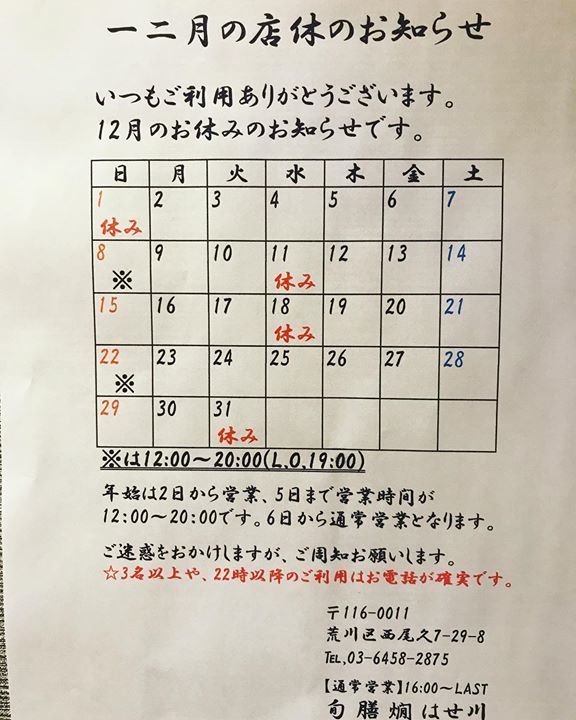 一二月の店休のお知らせ
いつもご利用ありがとうございます。
12月のお休みのお知らせです。
日 月 火 水 木 金 土
1 2 3 4 5 6 7
休み
8 9 10 11 12 13 14
※ 休み
15 16 17 18 19 20 21
休み
22 23 24 25 26 27 28
※
29 30 31
休み
※は12:00～20:00(L,O,19:00)
年始は2日から営業、5日まで営業時間が
12:00～20:00です。6日から通常営業となります。
ご迷惑をおかけしますが、ご周知お願いします。
☆3名以上や、22時以降のご利用はお電話が確実です。
〒116-0011
荒川区西尾久7-29-8
TEL,03-6458-2875
【通常営業】16:00～LAST
旬膳燗はせ川